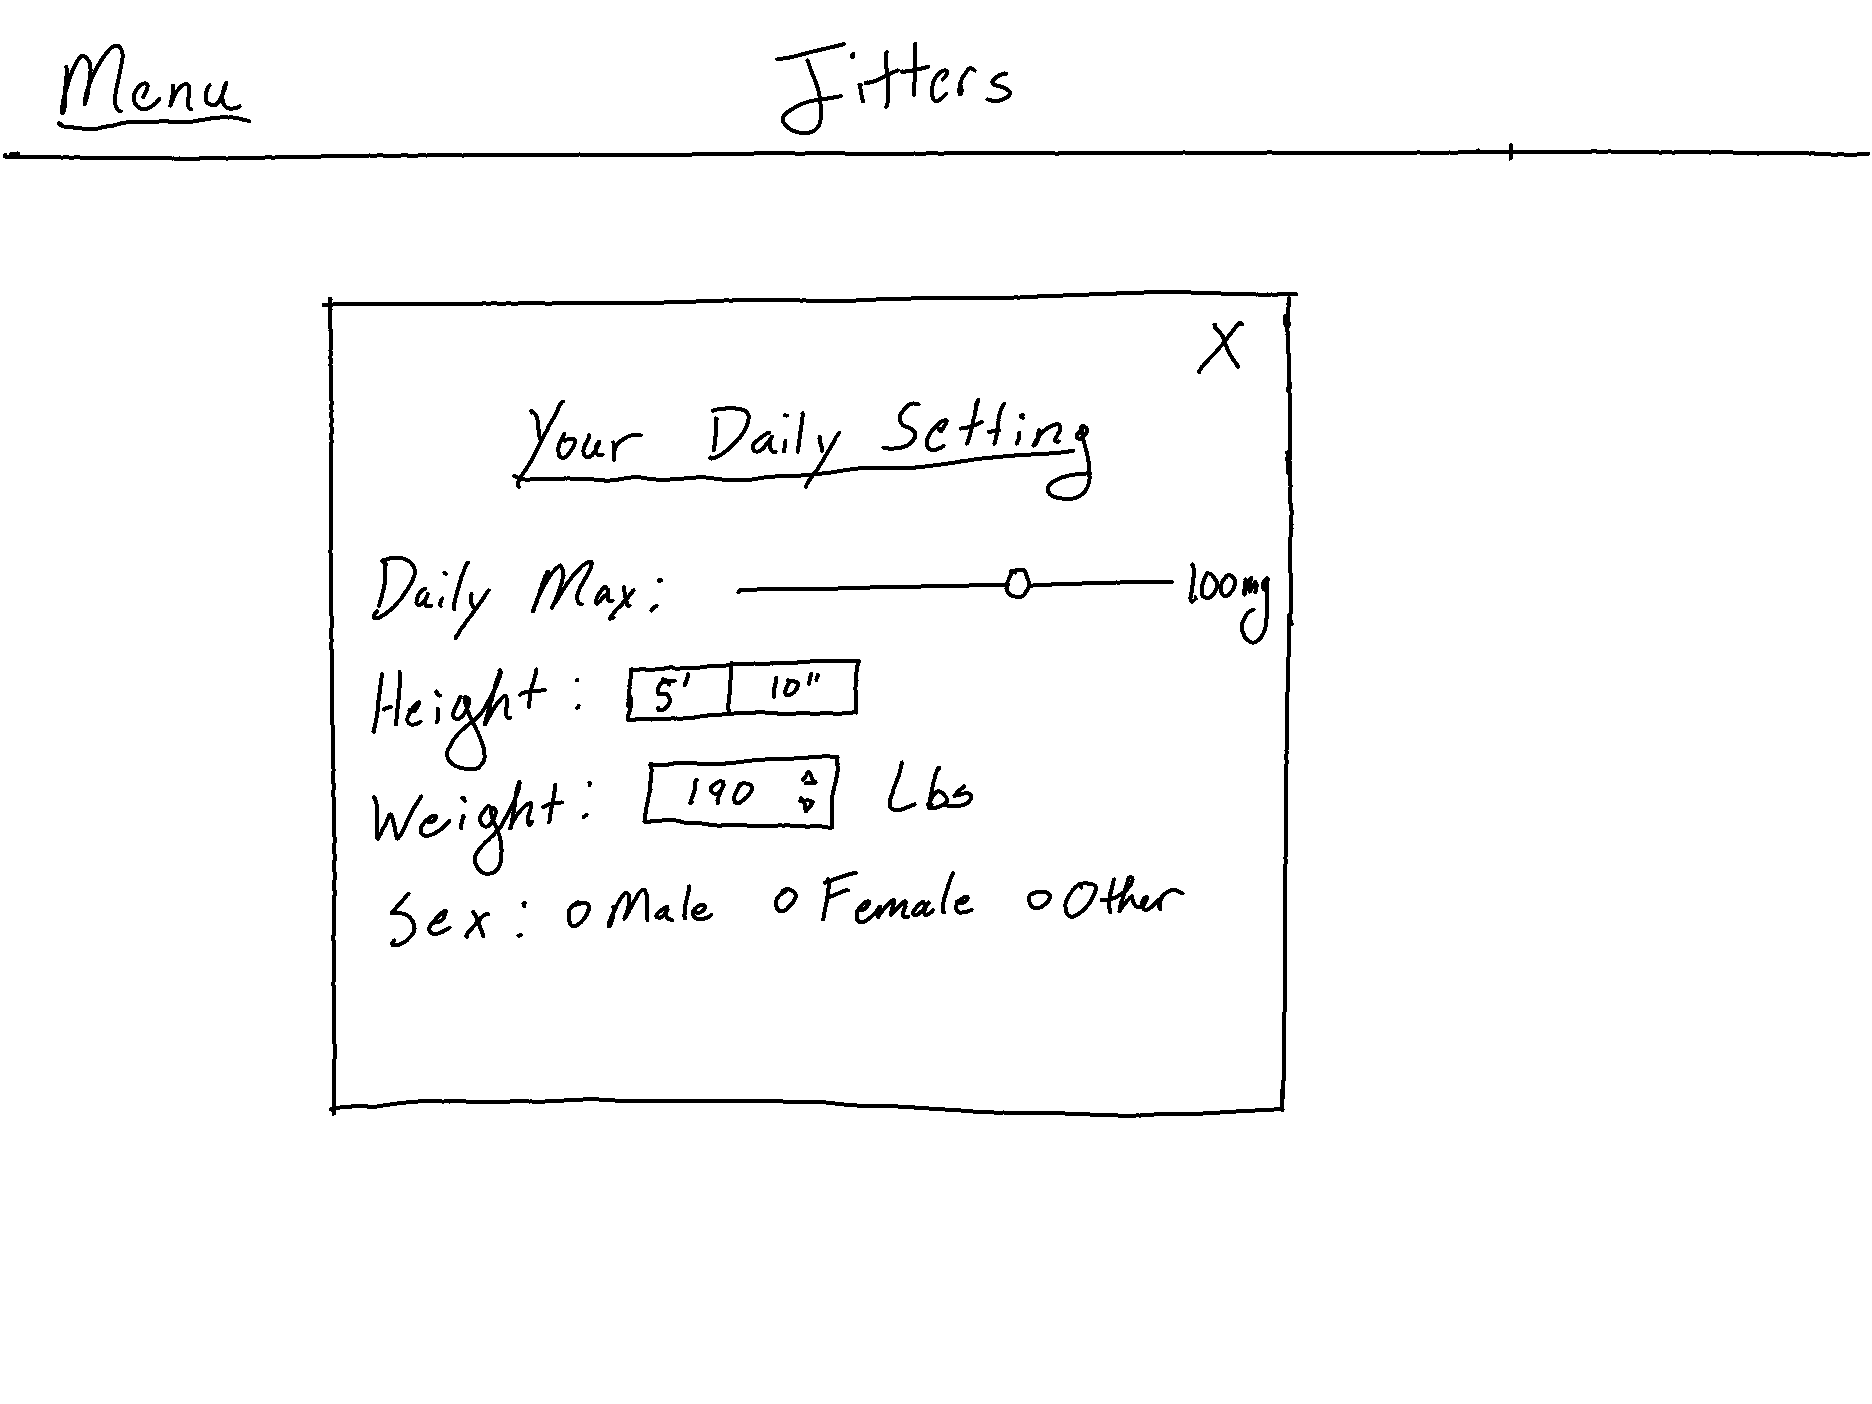 Menu
Jitters
X
Your Daily Setting
Daily Max: 100mg
Height: 5' 10"
Weight: 190 Lbs
Sex: Male Female Other